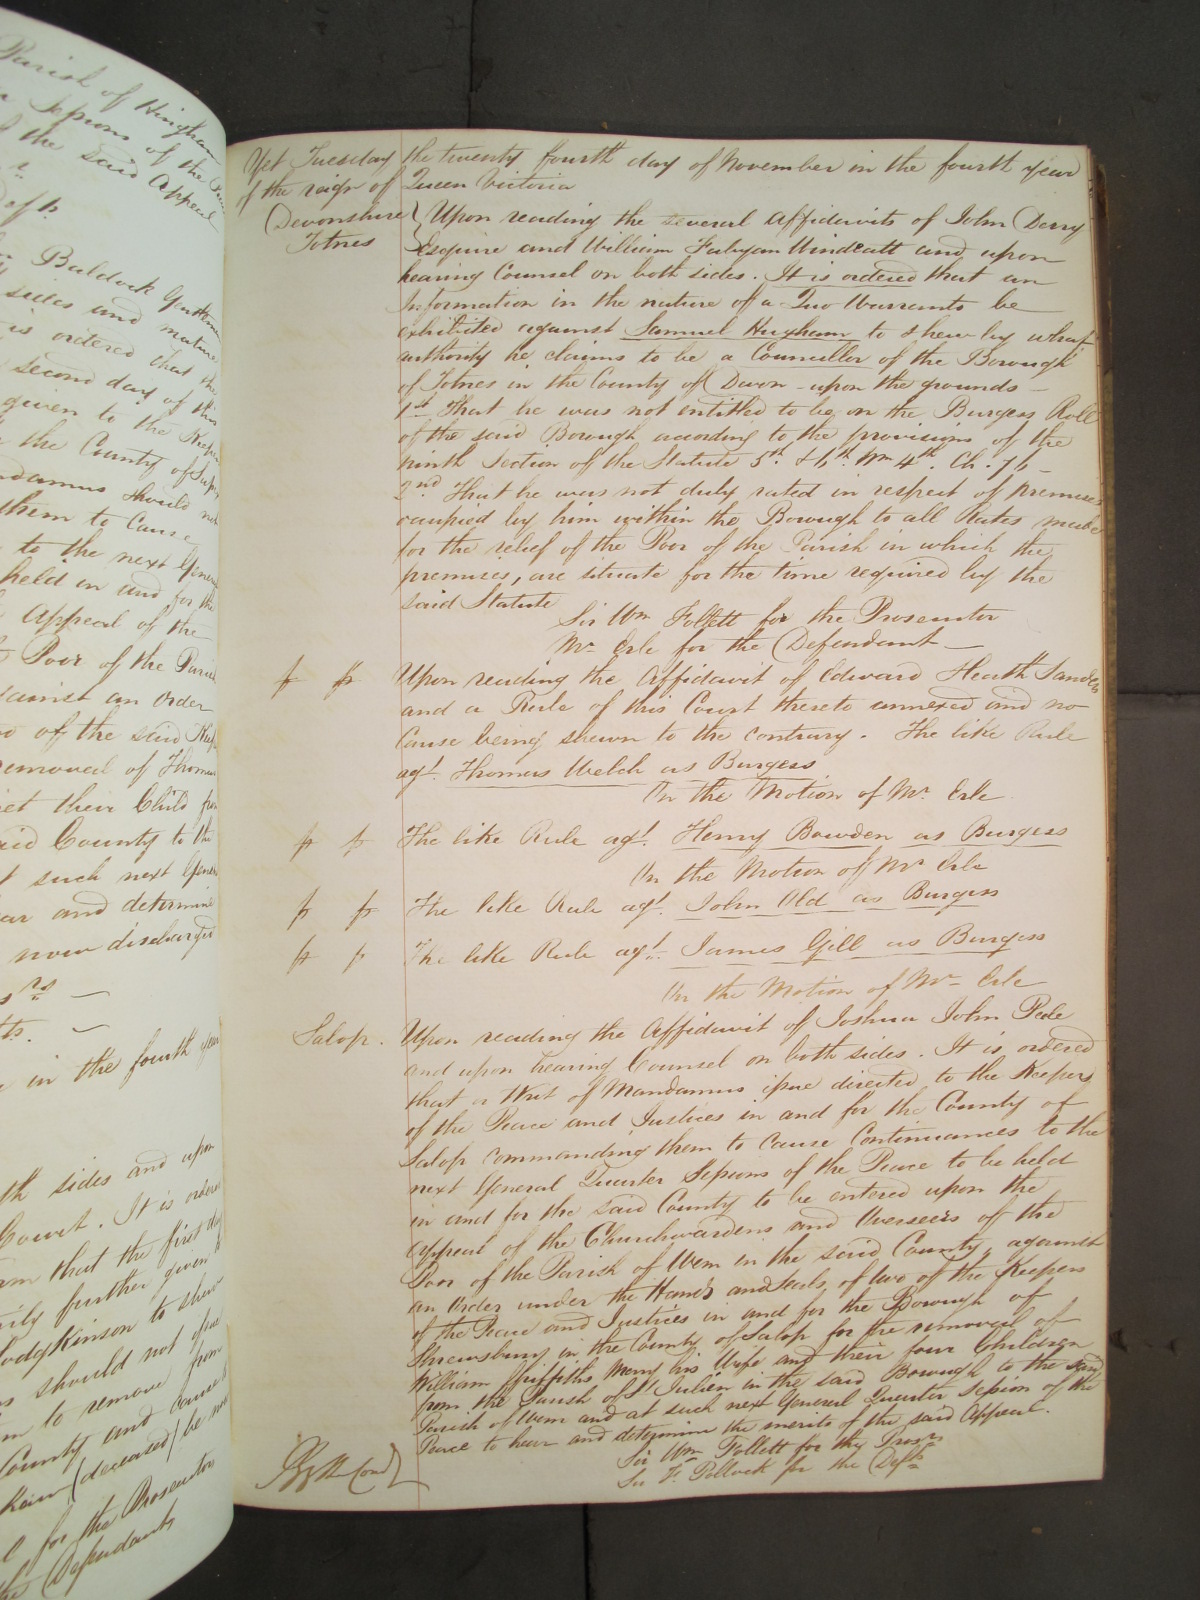 Parish of Hingham
Sessions of the
the said Appeal
Baldock Gentleman
sides and mature
is ordered that the
second day of this
given to the Keepers
the County of
should not
them to Cause
to the next General
held in and for the
Appeal of the
Poor of the Parish
against an Order
of the said
removal of Thomas
their Child from
said County to the
such next General
hear and determine
now discharged
in the fourth year
sides and upon
Court. It is ordered
that the first day
further given to
Hodgkinson to shew
should not issue
to remove from
County and Cause
(deceased) be
for the Prosecutor
the Defendants
Yet Tuesday the twenty fourth day of November in the fourth year
of the reign of Queen Victoria
Devonshire } Upon reading the several Affidavits of John Derry
Totnes Esquire and William Fabyan Windeatt and upon
hearing Counsel on both sides. It is ordered that an
Information in the nature of a Quo Warranto be
exhibited against Samuel Hugham to shew by what
authority he claims to be a Councillor of the Borough
of Totnes in the County of Devon - upon the grounds -
1st That he was not entitled to be on the Burgess Roll
of the said Borough according to the provisions of the
ninth Section of the Statute 5th & 6th Wm 4th Ch. 76 -
2nd That he was not duly rated in respect of premises
occupied by him within the Borough to all Rates made
for the relief of the Poor of the Parish in which the
premises, are situate for the time required by the
said Statute
Sir Wm Follett for the Prosecutor
Mr Erle for the Defendant -
Upon reading the Affidavit of Edward Heath Sanders
and a Rule of this Court thereto annexed and no
Cause being shewn to the contrary. The like Rule
agt. Thomas Welch as Burgess
On the Motion of Mr Erle
The like Rule agt. Henry Bowden as Burgess
On the Motion of Mr Erle
The like Rule agt. John Old as Burgess
The like Rule agt. James Gill as Burgess
On the Motion of Mr Erle
Salop. Upon reading the Affidavit of Joshua John Peele
and upon hearing Counsel on both sides. It is ordered
that a Writ of Mandamus issue directed to the Keepers
of the Peace and Justices in and for the County of
Salop commanding them to cause Continuances to the
next General Quarter Sessions of the Peace to be held
in and for the said County to be entered upon the
Appeal of the Churchwardens and Overseers of the
Poor of the Parish of Wem in the said County, against
an Order under the Hands and Seals of two of the Keepers
of the Peace and Justices in and for the Borough of
Shrewsbury in the County of Salop for the removal of
William Griffiths Mary his Wife and their four Children
from the Parish of St Julien in the said Borough to the said
Parish of Wem and at such next General Quarter Session of the
Peace to hear and determine the merits of the said Appeal.
Sir Wm Follett for the Prosrs
Sir F. Pollock for the Defts